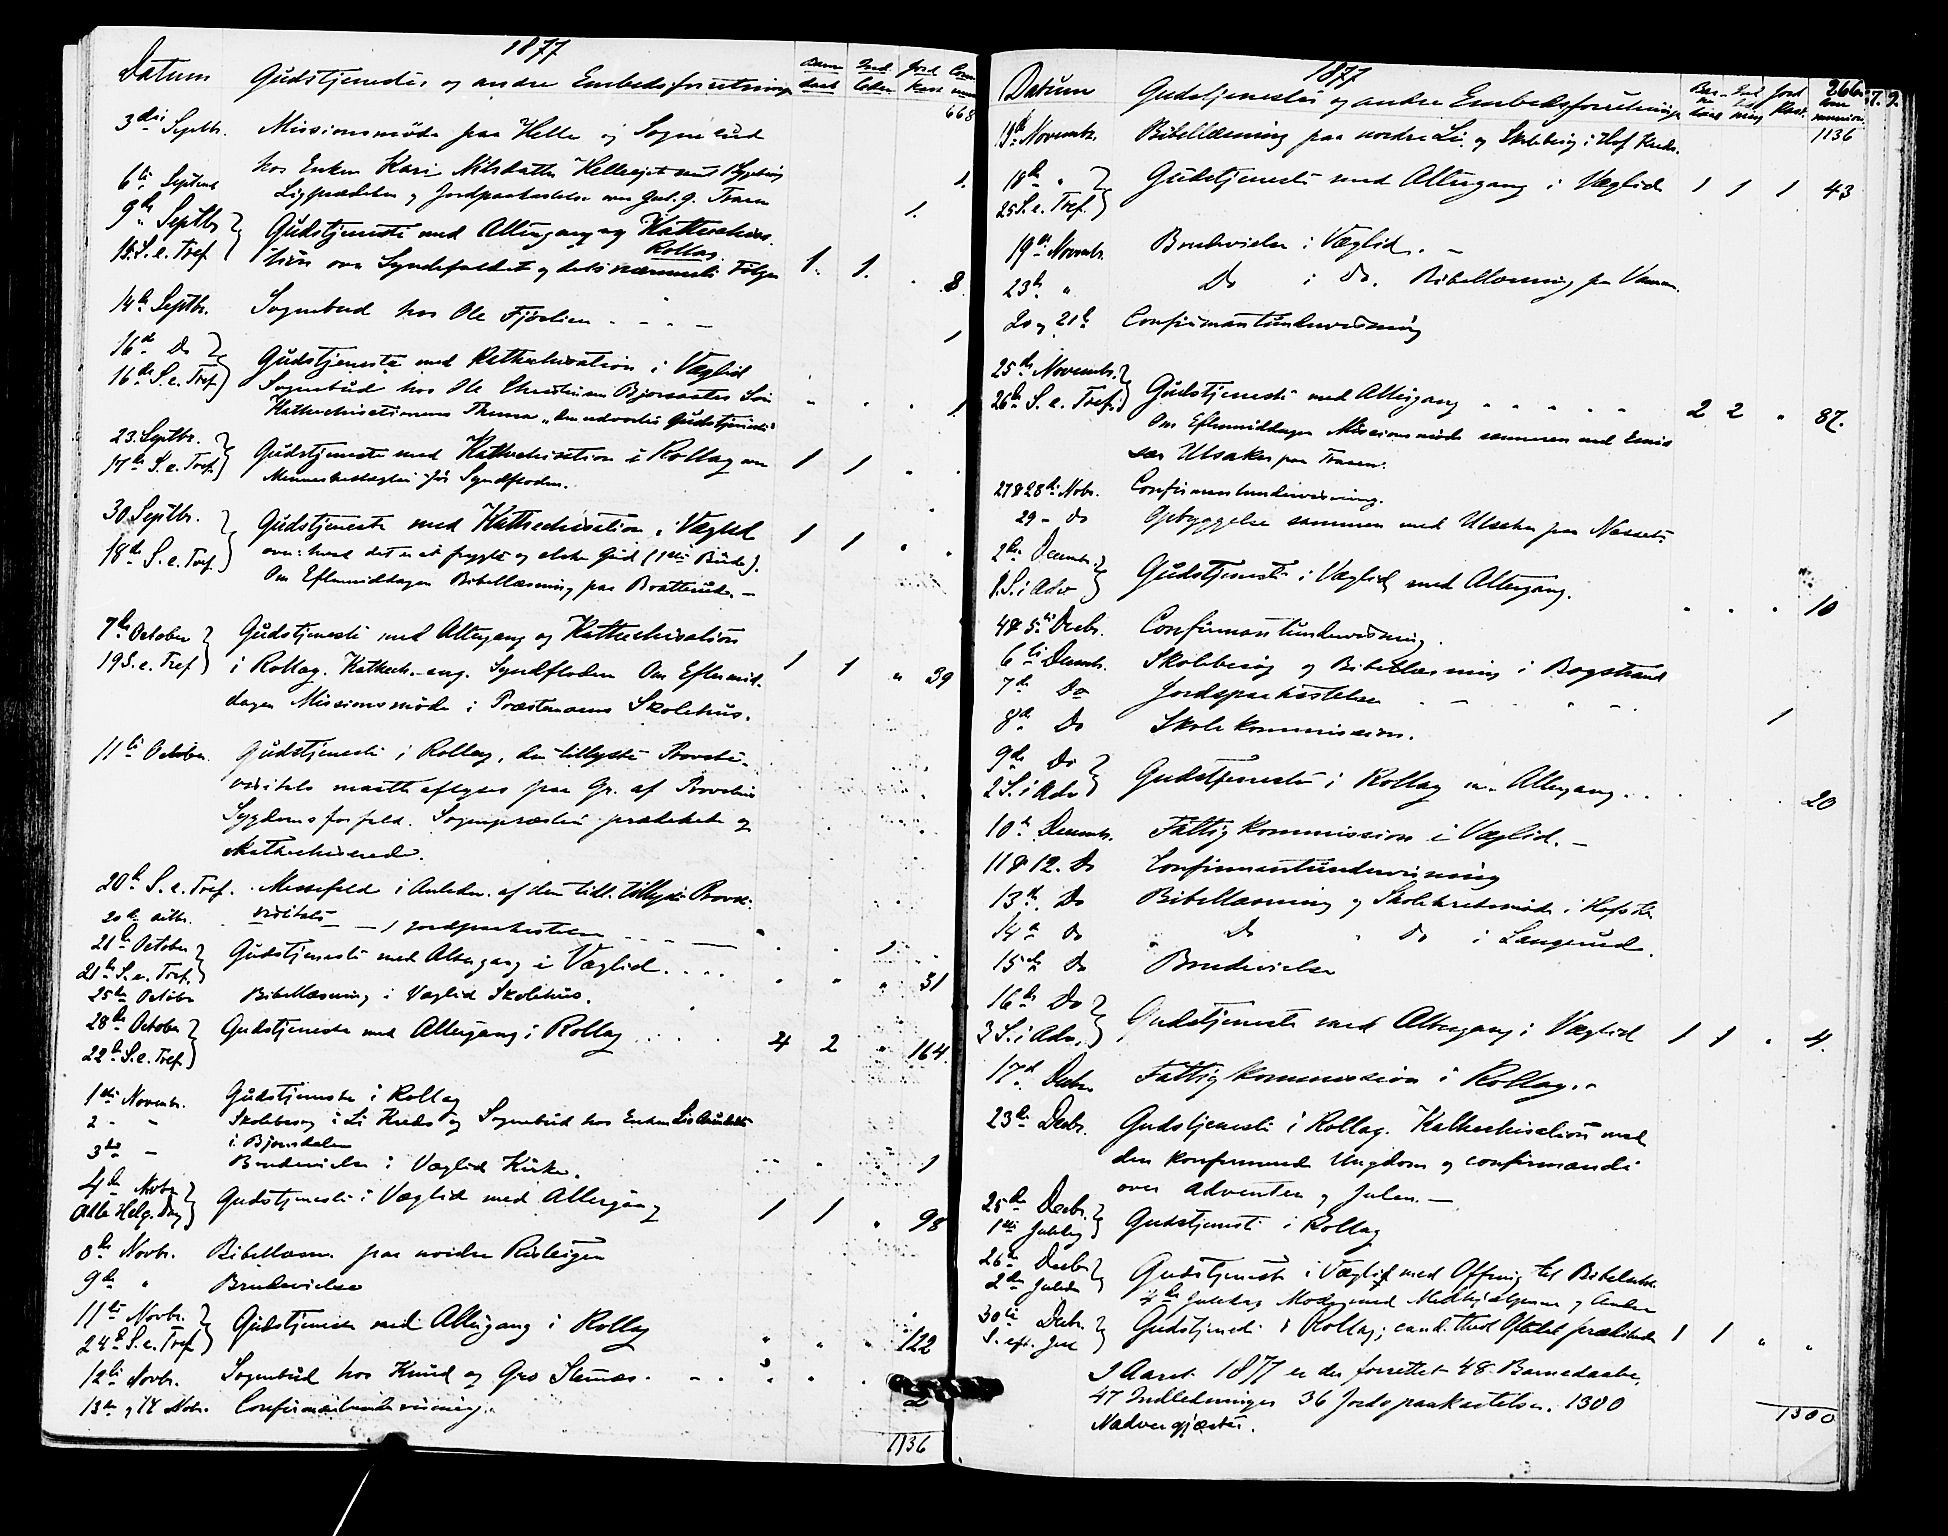 1877
Datum Gudstjenester og andre Embedsforretninger Barn daab Ind leden Jord kast Com mun
668
3die Septbr. Missionsmöde paa Helle og Sognebud
hos Enken Kari Nilsdatter Helleejet samt
6te Septemb Ligprædiken og Jordpaakastelse over 1.
9de Septbr Gudstjeneste med Altergang og Kathechisa- 1.
15. S. e. Tref tion over Syndefaldet og dets nærmeste Følger Rollag 1. 1. 8
14de Septbr. Sognebud hos Ole Fjörlien 1
16de Do
16de S. e. Tref Gudstjeneste med Kathechisation i Væglid
Sognebud hos Ole Christian Bjornsaten 1
Kathechisationens Thema "den udvortes Gudstjeneste"
23. Septbr. Gudstjeneste med Kathechisation i Rollag om 1 1
17de S. e. Tref Menneskeslægten før Syndfloden.
30 Septbr. Gudstjeneste med Kathechisation i Væglid 1 1
18de S. e. Tref over: hvad det er at frygte og elske Gud (1ste Bud).
Om Eftermiddagen Bibellæsning paa Bratterud.
7de October Gudstjeneste med Altergang og Kathechisation
19 S. e. Tref i Rollag. Kathech. ang. Syndfloden Om Eftermid- 1 1 " 39
dagen Missionsmöde i Præstemoens Skolehus.
11te October Gudstjeneste i Rollag, den tillyste Provste-
visitats maatte aflyses paa Gr. af Provstens
Sygdomsforfald. Sognepræsten prædikede og
Kathechiserede.
20de S. e. Tref. Messefald i Anledn. af den tidl. tillyste Provst-
20de visitats - 1 Jordpaakastelse 1
21de October
21de S. e. Tref. Gudstjeneste med Altergang i Væglid 31
25de Octobr Bibellæsning i Væglid Skolehus.
28de October Gudstjeneste med Altergang i Rollag
22de S. e. Tref. 4 2 " 164.
1ste Novembr. Gudstjeneste i Rollag
2 - " Skolebesög i Li Kreds og Sognebud hos Enken
i Bjornsdalen 1
3die - Brudevielse i Væglid Kirke.
4de Novbr
Alle Helg. Dag Gudstjeneste i Væglid med Altergang 1 1 " 98
8de Novbr. Bibellæsn. paa nordre Risteigen
9de " Brudevielse
11te Novbr.
24de S. e. Tref Gudstjeneste med Altergang i Rollag 122
12te Novbr. Sognebud hos Knud og Gro Stennes. 2
13de og 14 Nobr. Confirmantundervisning.
1136
1877
266
Datum Gudstjenester og andre Embedsforretninger Barne daab Ind led ning Jord kast. Com munion
1136
Novembr. Bibellæsning paa nordre Li og Skolebesög i Hof Kreds.
18de "
25 S. e. Tref. Gudstjeneste med Altergang i Væglid 1 1 1 43
19de Novembr. Brudevielse i Væglid.
23de " Do i do. Bibellæsning paa
20 og 21de Confirmantundervisning
25de Novembr.
26de S. e. Tref. Gudstjeneste med Altergang 2 2 " 87.
Om Eftermiddagen Missionsmöde sammen med
Ulsaker paa Traaen.
27 & 28de Nobr. Confirmantundervisning.
29 - do Opbyggelse sammen med Ulsaker paa
2den Decembr.
1. S. i Adv Gudstjeneste i Væglid med Altergang. 10
4 & 5te Decbr. Confirmantundervisning.
6te Decmb. Skolebesög og Bibellæsning i Bogstrand
7de Do Jordpaakastelse 1
8de Do Skolekommission.
9de Do
2 S. i Adv Gudstjeneste i Rollag m. Altergang. 20
10de Decembr. Fattigkommission i Væglid.
11 & 12. Do Confirmantundervisning
13de Do Bibellæsning og Skolekredsmöde i
14de do " Do " do i Langerud.
15de do Brudevielse
16de Do
3 S. i Adv. Gudstjeneste med Altergang i Væglid 1 1 " 4.
17de Decbr Fattigkommission i Rollag.
23de Decbr. Gudstjeneste i Rollag. Kathechisation med
den konfirmerede Ungdom og confirmander
over Adventen og Julen.
25de Decbr.
1ste Juledag Gudstjenest i Rollag
26de Decbr
2den Juledag Gudstjeneste i Væglid med Offring til
4de Juledag Möde med og Andre
30te Decbr.
S. eft. Jul Gudstjeneste i Rollag; cand. theol prædikede 1 1 " "
I Aaret 1877 er der forrettet 48 Barnedaabe,
47 Indledninger 36 Jordpaakastelser. 1300
Nadvergjæster. 1300